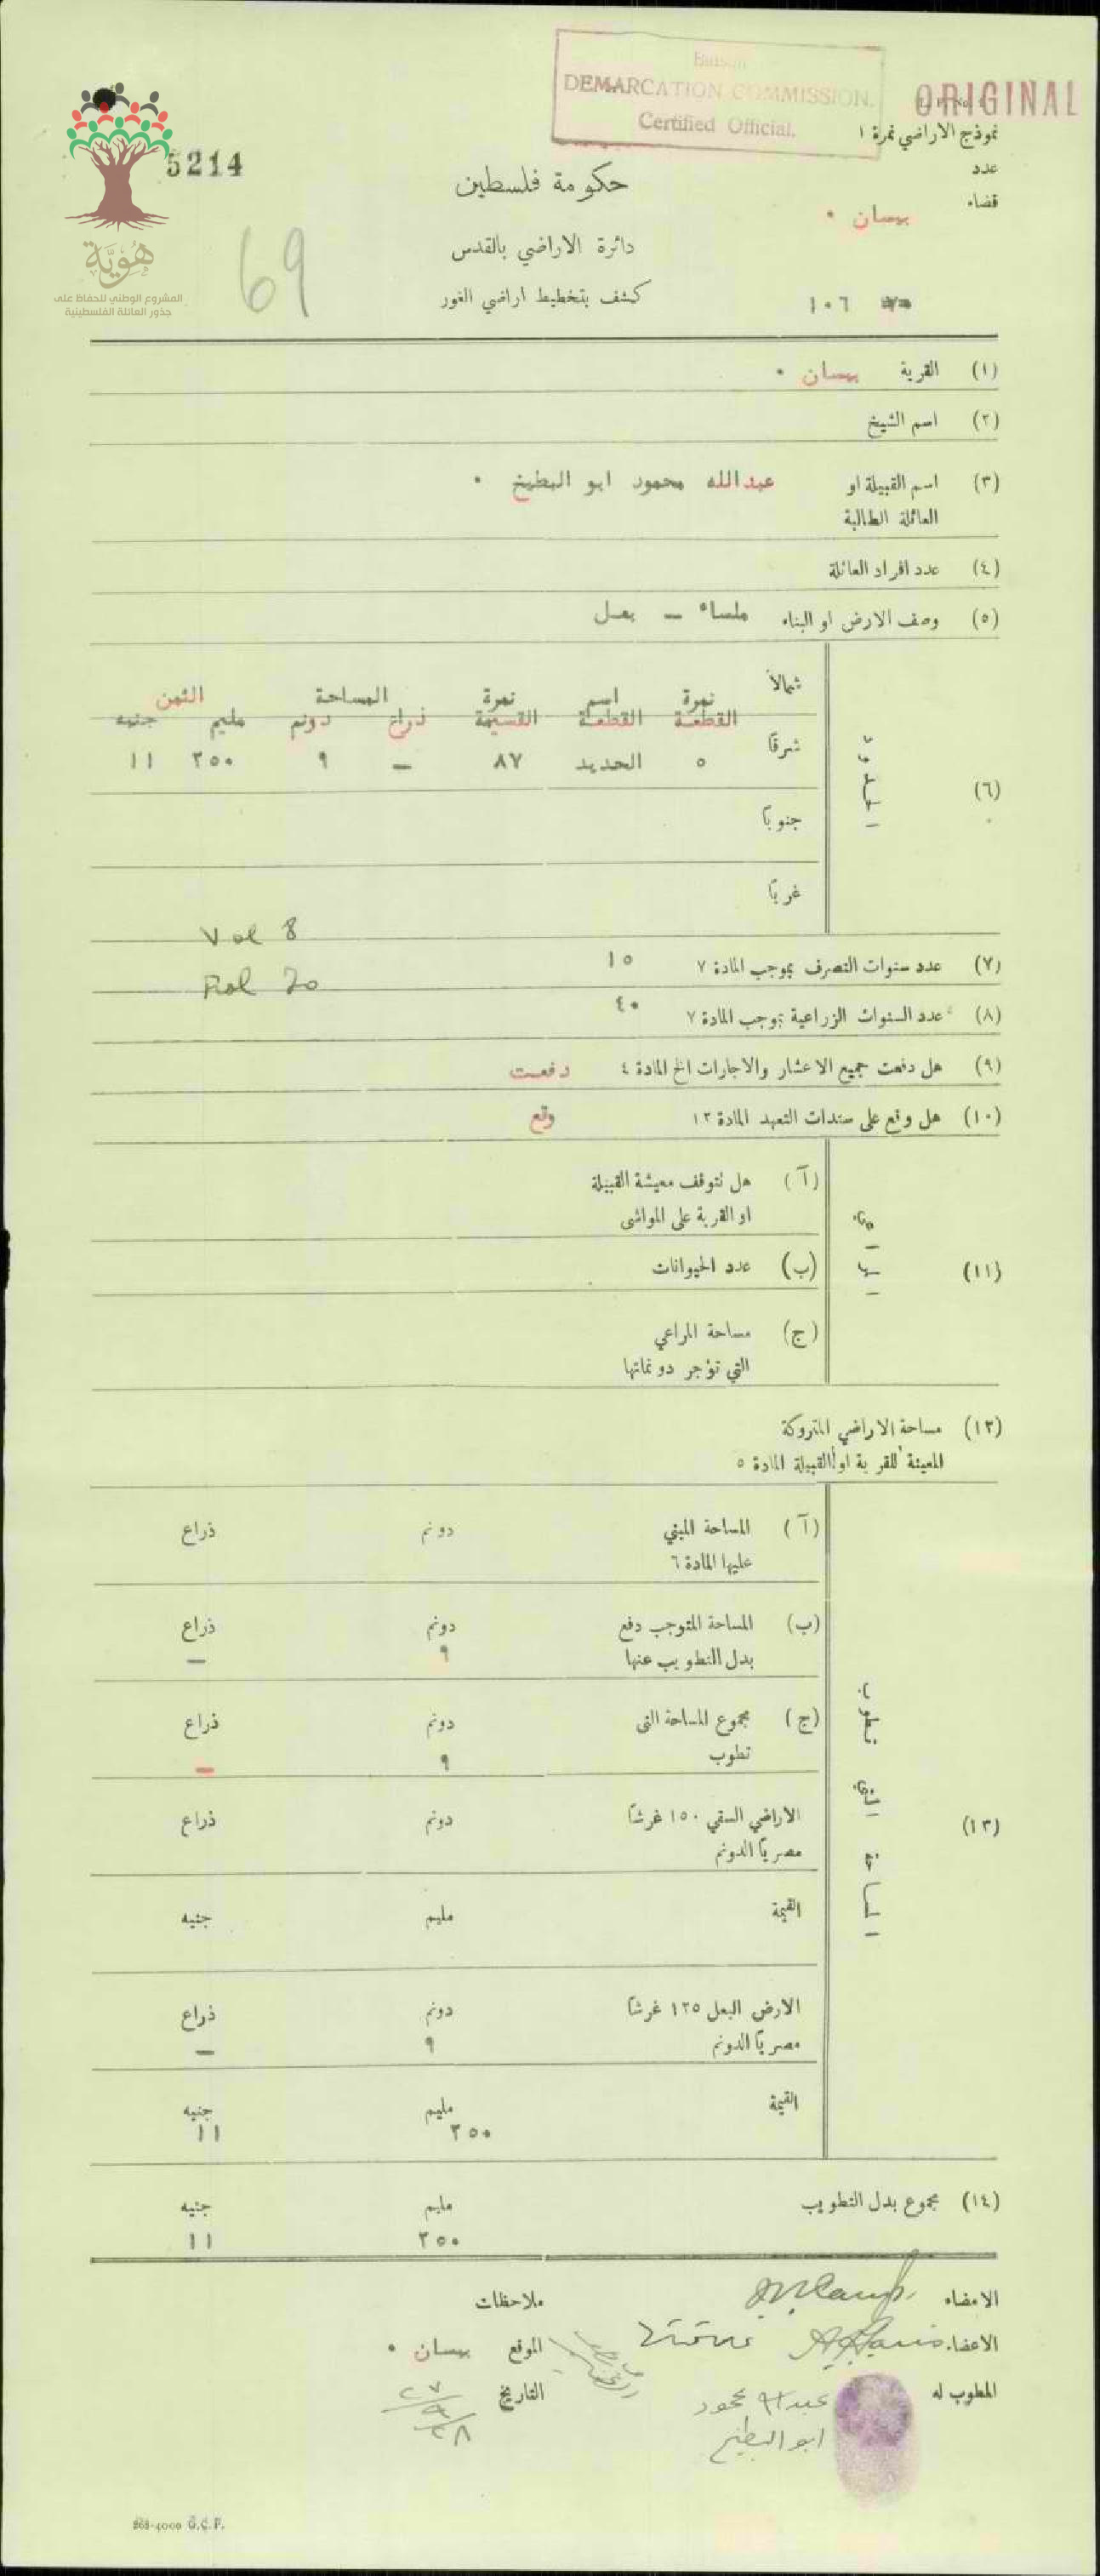 Beisan
DEMARCATION COMMISSION.
Certified Official.
ORIGINAL
نموذج الاراضي نمرة ١
عدد
5214
حكومة فلسطين
قضاء
بيسان ٠
دائرة الاراضي بالقدس
69
هُوِيَّة
المشروع الوطني للحفاظ على
جذور العائلة الفلسطينية
كشف بتخطيط اراضي الغور
١٠٦
(١) القرية بيسان ٠
(٢) اسم الشيخ
(٣) اسم القبيلة او عبدالله محمود ابو البطيخ ٠
العائلة الطالبة
(٤) عدد افراد العائلة
(٥) وصف الارض او البناء ملساء — بعـل
شمالاً
نمرة اسم نمرة المساحة الثمن
القطعة القطعة القسيمة ذراع دونم مليم جنيه
شرقاً
٥ الحديد ٨٧ — ٩ ٢٥٠ ١١
(٦) الحدود
جنوباً
غرباً
Vol 8
(٧) عدد سنوات التصرف بموجب المادة ٧ ١٥
Fol 70
(٨) عدد السنوات الزراعية بموجب المادة ٧ ٤٠
(٩) هل دفعت جميع الاعشار والاجارات الخ المادة ٤ دفعـت
(١٠) هل وقع على سندات التعهد المادة ١٢ وقع
(آ) هل تتوقف معيشة القبيلة
او القرية على المواشى
(١١)
(ب) عدد الحيوانات
(ج) مساحة المراعي
التي تؤجر دونماتها
(١٢) مساحة الاراضي المتروكة
المعينة للقرية او القبيلة المادة ٥
(آ) المساحة المبني دونم ذراع
عليها المادة ٦
(ب) المساحة المتوجب دفع دونم ذراع
بدل التطويب عنها ٩ —
(ج) مجموع المساحة التى دونم ذراع
تطوب ٩ —
(١٣) المساحة التي تطوب
الاراضي السقي ١٥٠ غرشاً دونم ذراع
مصرياً الدونم
القيمة مليم جنيه
الارض البعل ١٢٥ غرشاً دونم ذراع
مصرياً الدونم ٩ —
القيمة مليم جنيه
٢٥٠ ١١
(١٤) مجموع بدل التطويب مليم جنيه
٢٥٠ ١١
الامضاء
ملاحظات
الاعضاء
الموقع بيسان ٠
المطوب له عبدالله محمود
ابو البطيخ
التاريخ ٢٧/٩/٢٨
868-4000 G.C.P.